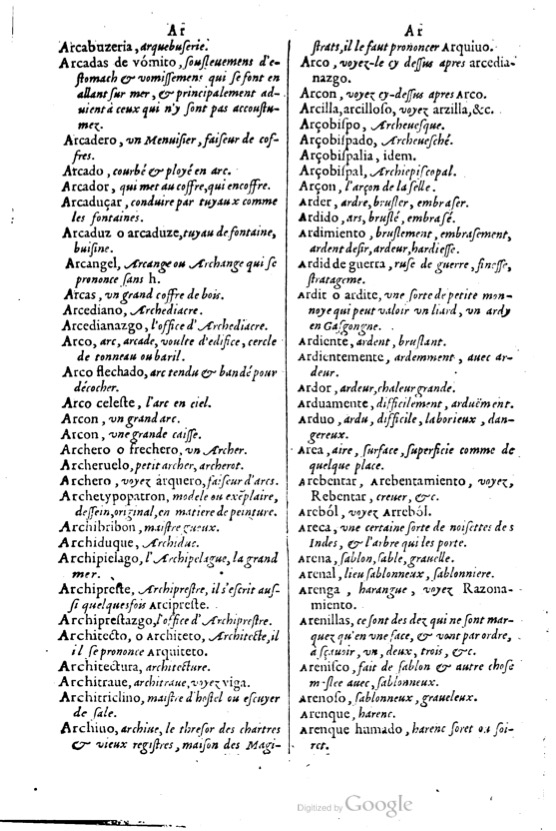 Ar
Arcabuzeria, arquebuserie.
Arcadas de vómito, souſleuemens d'e-
ſtomach & vomiſſemens qui ſe font en
allant ſur mer, & principalement ad-
uient à ceux qui n'y ſont pas accouſtu-
mez.
Arcadero, vn Menuiſier, faiſeur de cof-
fres.
Arcado, courbé & ployé en arc.
Arcador, qui met au coffre, qui encoffre.
Arcaduçar, conduire par tuyaux comme
les fontaines.
Arcaduz o arcaduze, tuyau de fontaine,
buiſine.
Arcangel, Arcange ou Archange qui ſe
prononce ſans h.
Arcas, vn grand coffre de bois.
Arcediano, Archediacre.
Arcedianazgo, l'office d'Archediacre.
Arco, arc, arcade, voulte d'edifice, cercle
de tonneau ou baril.
Arco flechado, arc tendu & bandé pour
décocher.
Arco celeſte, l'arc en ciel.
Arcon, vn grand arc.
Arcon, vne grande caiſſe.
Archero o frechero, vn Archer.
Archeruelo, petit archer, archerot.
Archero, voyez arquero, faiſeur d'arcs.
Archetypopatron, modele ou exẽplaire,
deſſein, original, en matiere de peinture.
Archibribon, maiſtre gueux.
Archiduque, Archiduc.
Archipielago, l'Archipelague, la grand
mer.
Archipreſte, Archipreſtre, il s'eſcrit auſ-
ſi quelquesfois Arcipreſte.
Archipreſtazgo, l'office d'Archipreſtre.
Architecto, o Architeto, Architecte, il
il ſe prononce Arquiteto.
Architectura, architecture.
Architraue, architraue, voyez viga.
Architriclino, maiſtre d'hoſtel ou eſcuyer
de ſale.
Archiuo, archiue, le threſor des chartres
& vieux regiſtres, maiſon des Magi-
Ar
ſtrats, il le faut prononcer Arquiuo.
Arco, voyez-le cy deſſus apres arcedia-
nazgo.
Arcon, voyez cy-deſſus apres Arco.
Arcilla, arcilloſo, voyez arzilla, &c.
Arçobiſpo, Archeueſque.
Arçobiſpado, Archeueſché.
Arçobiſpalia, idem.
Arçobiſpal, Archiepiſcopal.
Arçon, l'arçon de la ſelle.
Arder, ardre, bruſler, embraſer.
Ardido, ars, bruſlé, embraſé.
Ardimiento, bruſlement, embraſement,
ardent deſir, ardeur, hardieſſe.
Ardid de guerra, ruſe de guerre, fineſſe,
ſtratageme.
Ardit o ardite, vne ſorte de petite mon-
noye qui peut valoir vn liard, un ardy
en Gaſgongne.
Ardiente, ardent, bruſlant.
Ardientemente, ardemment, auec ar-
deur.
Ardor, ardeur, chaleur grande.
Arduamente, difficilement, arduëment.
Arduo, ardu, difficile, laborieux, dan-
gereux.
Area, aire, ſurface, ſuperficie comme de
quelque place.
Arebentar, Arebentamiento, voyez,
Rebentar, creuer, &c.
Areból, voyez Arreból.
Areca, vne certaine ſorte de noiſettes des
Indes, & l'arbre qui les porte.
Arena, ſablon, ſable, grauelle.
Arenal, lieu ſablonneux, ſablonniere.
Arenga, harangue, voyez Razona-
miento.
Arenillas, ce ſont des dez qui ne ſont mar-
quez qu'en vne face, & vont par ordre,
à ſçauoir, vn, deux, trois, &c.
Areniſco, fait de ſablon & autre choſe
meſlee auec, ſablonneux.
Arenoſo, ſablonneux, graueleux.
Arenque, harenc.
Arenque humado, harenc ſoret ou ſoi-
ret.
Digitized by Google